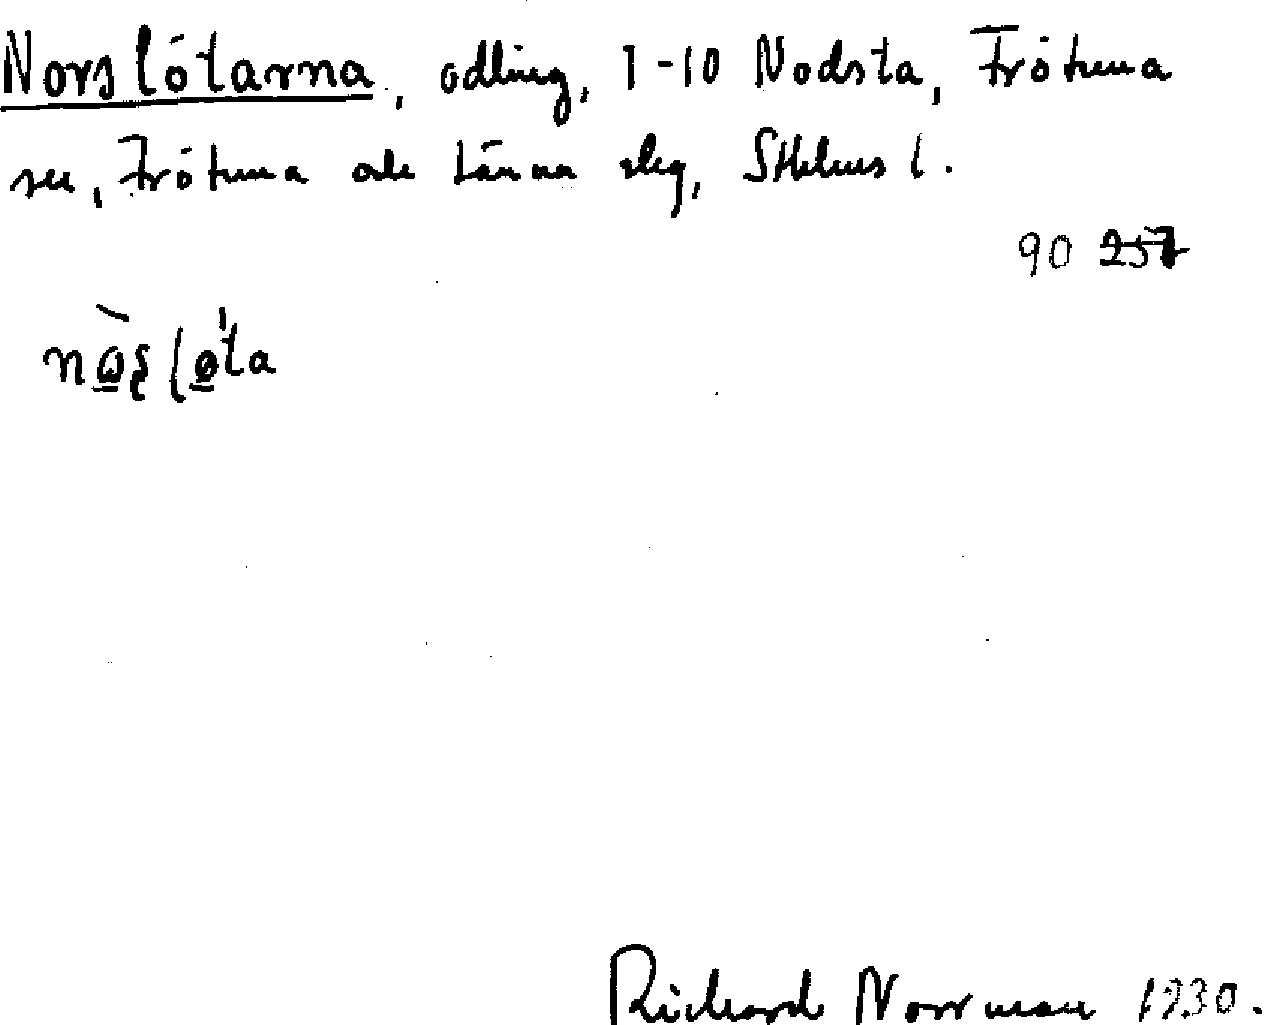 Norslötarna, odling, 1-10 Nodsta, Frötuna
sn, Frötuna och Länna slg, Sthlms l.
90 257
Richard Norrman 1930.